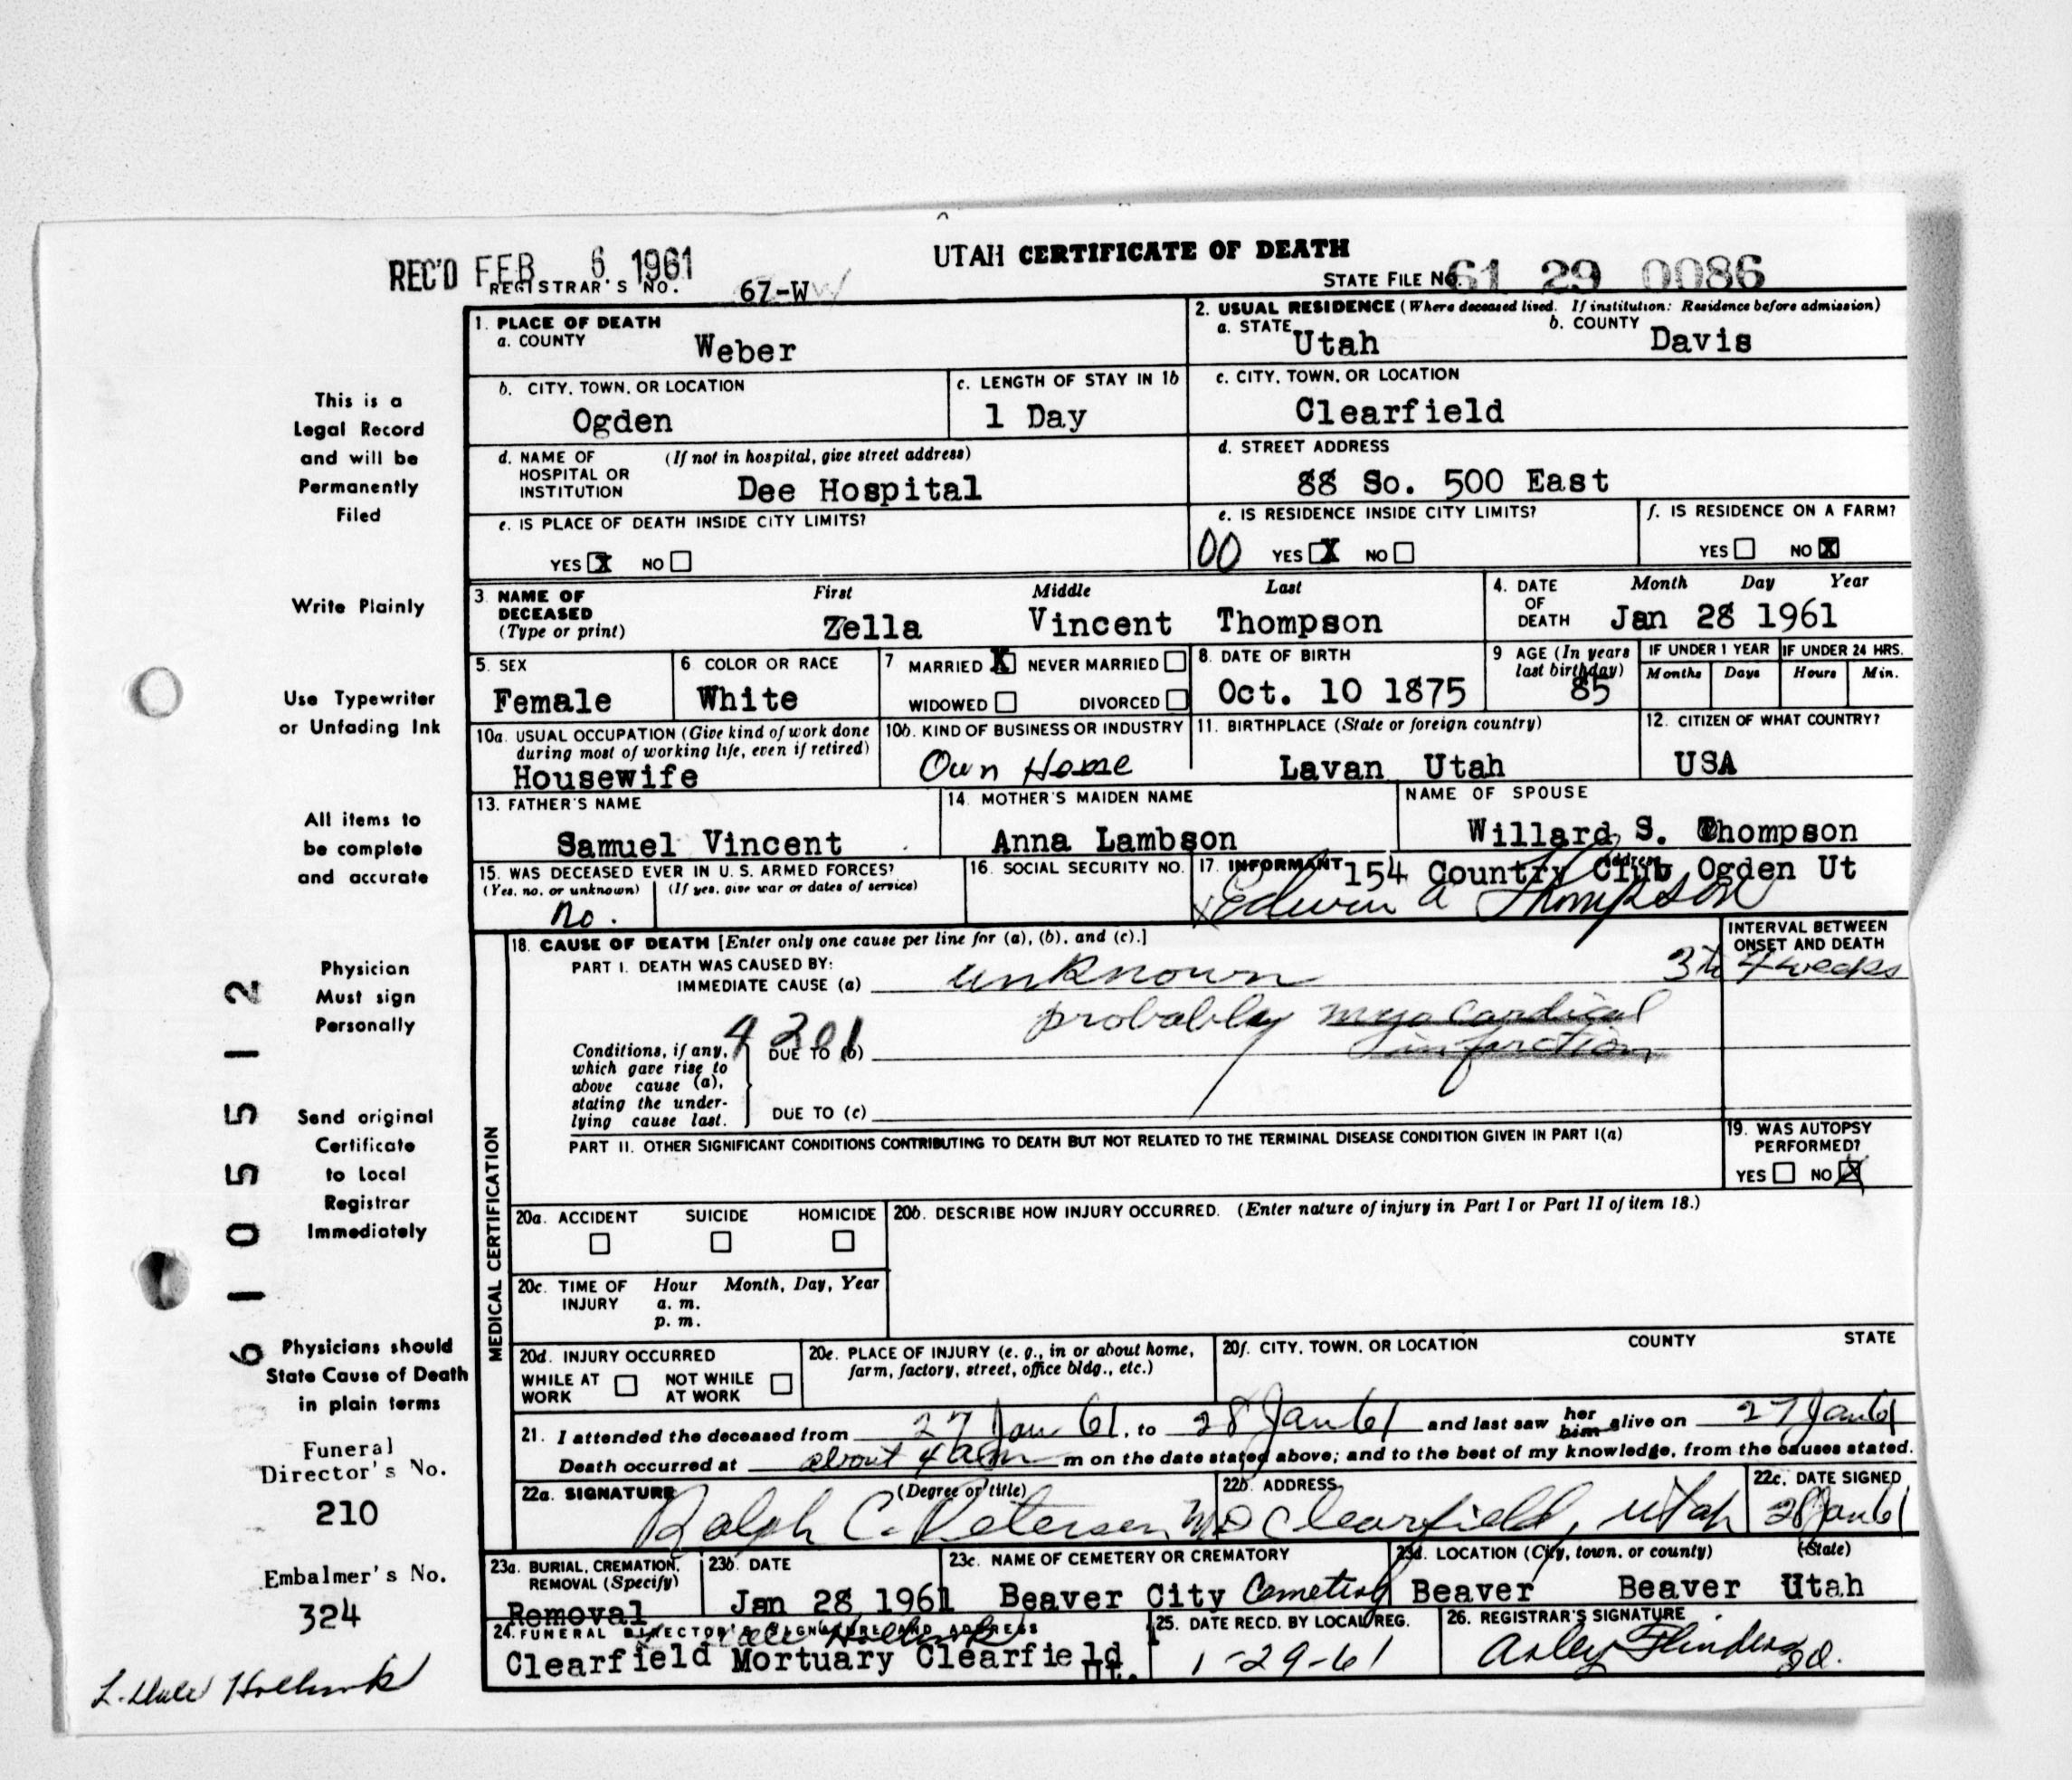 UTAH CERTIFICATE OF DEATH
REC'D FEB 6 1961
REGISTRAR'S NO. 67-W
STATE FILE NO. 61 29 0086
1. PLACE OF DEATH
a. COUNTY Weber
2. USUAL RESIDENCE (Where deceased lived. If institution: Residence before admission)
a. STATE Utah b. COUNTY Davis
b. CITY, TOWN, OR LOCATION Ogden
c. LENGTH OF STAY IN 1b 1 Day
c. CITY, TOWN, OR LOCATION Clearfield
d. NAME OF HOSPITAL OR INSTITUTION (If not in hospital, give street address) Dee Hospital
d. STREET ADDRESS 88 So. 500 East
e. IS PLACE OF DEATH INSIDE CITY LIMITS? YES X NO
e. IS RESIDENCE INSIDE CITY LIMITS? 00 YES X NO
f. IS RESIDENCE ON A FARM? YES NO X
3. NAME OF DECEASED (Type or print) First Zella Middle Vincent Last Thompson
4. DATE OF DEATH Month Day Year Jan 28 1961
5. SEX Female
6 COLOR OR RACE White
7 MARRIED X NEVER MARRIED WIDOWED DIVORCED
8. DATE OF BIRTH Oct. 10 1875
9 AGE (In years last birthday) 85
IF UNDER 1 YEAR Months Days
IF UNDER 24 HRS. Hours Min.
10a. USUAL OCCUPATION (Give kind of work done during most of working life, even if retired) Housewife
10b. KIND OF BUSINESS OR INDUSTRY Own Home
11. BIRTHPLACE (State or foreign country) Lavan Utah
12. CITIZEN OF WHAT COUNTRY? USA
13. FATHER'S NAME Samuel Vincent
14. MOTHER'S MAIDEN NAME Anna Lambson
NAME OF SPOUSE Willard S. Thompson
15. WAS DECEASED EVER IN U. S. ARMED FORCES?
(Yes, no, or unknown) (If yes, give war or dates of service)
no.
16. SOCIAL SECURITY NO.
17. INFORMANT Address 154 Country Club Ogden Ut
x Edwin A Thompson
MEDICAL CERTIFICATION
18. CAUSE OF DEATH [Enter only one cause per line for (a), (b), and (c).]
INTERVAL BETWEEN ONSET AND DEATH
PART I. DEATH WAS CAUSED BY:
IMMEDIATE CAUSE (a) unknown 3 to 4 weeks
probably myocardical infarction
4201
Conditions, if any, which gave rise to above cause (a), stating the underlying cause last.
DUE TO (b)
DUE TO (c)
PART II. OTHER SIGNIFICANT CONDITIONS CONTRIBUTING TO DEATH BUT NOT RELATED TO THE TERMINAL DISEASE CONDITION GIVEN IN PART I(a)
19. WAS AUTOPSY PERFORMED?
YES NO X
20a. ACCIDENT SUICIDE HOMICIDE
20b. DESCRIBE HOW INJURY OCCURRED. (Enter nature of injury in Part I or Part II of item 18.)
20c. TIME OF INJURY Hour Month, Day, Year
a. m.
p. m.
20d. INJURY OCCURRED
WHILE AT WORK NOT WHILE AT WORK
20e. PLACE OF INJURY (e. g., in or about home, farm, factory, street, office bldg., etc.)
20f. CITY, TOWN, OR LOCATION COUNTY STATE
21. I attended the deceased from 27 Jan 61, to 28 Jan 61 and last saw her him alive on 27 Jan 61
Death occurred at about 4 am m on the date stated above; and to the best of my knowledge, from the causes stated.
22a. SIGNATURE (Degree or title) Ralph C. Petersen, MD
22b. ADDRESS Clearfield, Utah
22c. DATE SIGNED 28 Jan 61
23a. BURIAL, CREMATION, REMOVAL (Specify) Removal
23b. DATE Jan 28 1961
23c. NAME OF CEMETERY OR CREMATORY Beaver City Cemetery
23d. LOCATION (City, town, or county) (State) Beaver Beaver Utah
24. FUNERAL DIRECTOR'S SIGNATURE AND ADDRESS
Clearfield Mortuary Clearfield Ut.
25. DATE RECD. BY LOCAL REG. 1-29-61
26. REGISTRAR'S SIGNATURE
This is a
Legal Record
and will be
Permanently
Filed
Write Plainly
Use Typewriter
or Unfading Ink
All items to
be complete
and accurate
Physician
Must sign
Personally
Send original
Certificate
to Local
Registrar
Immediately
Physicians should
State Cause of Death
in plain terms
Funeral
Director's No.
210
Embalmer's No.
324
61 05512